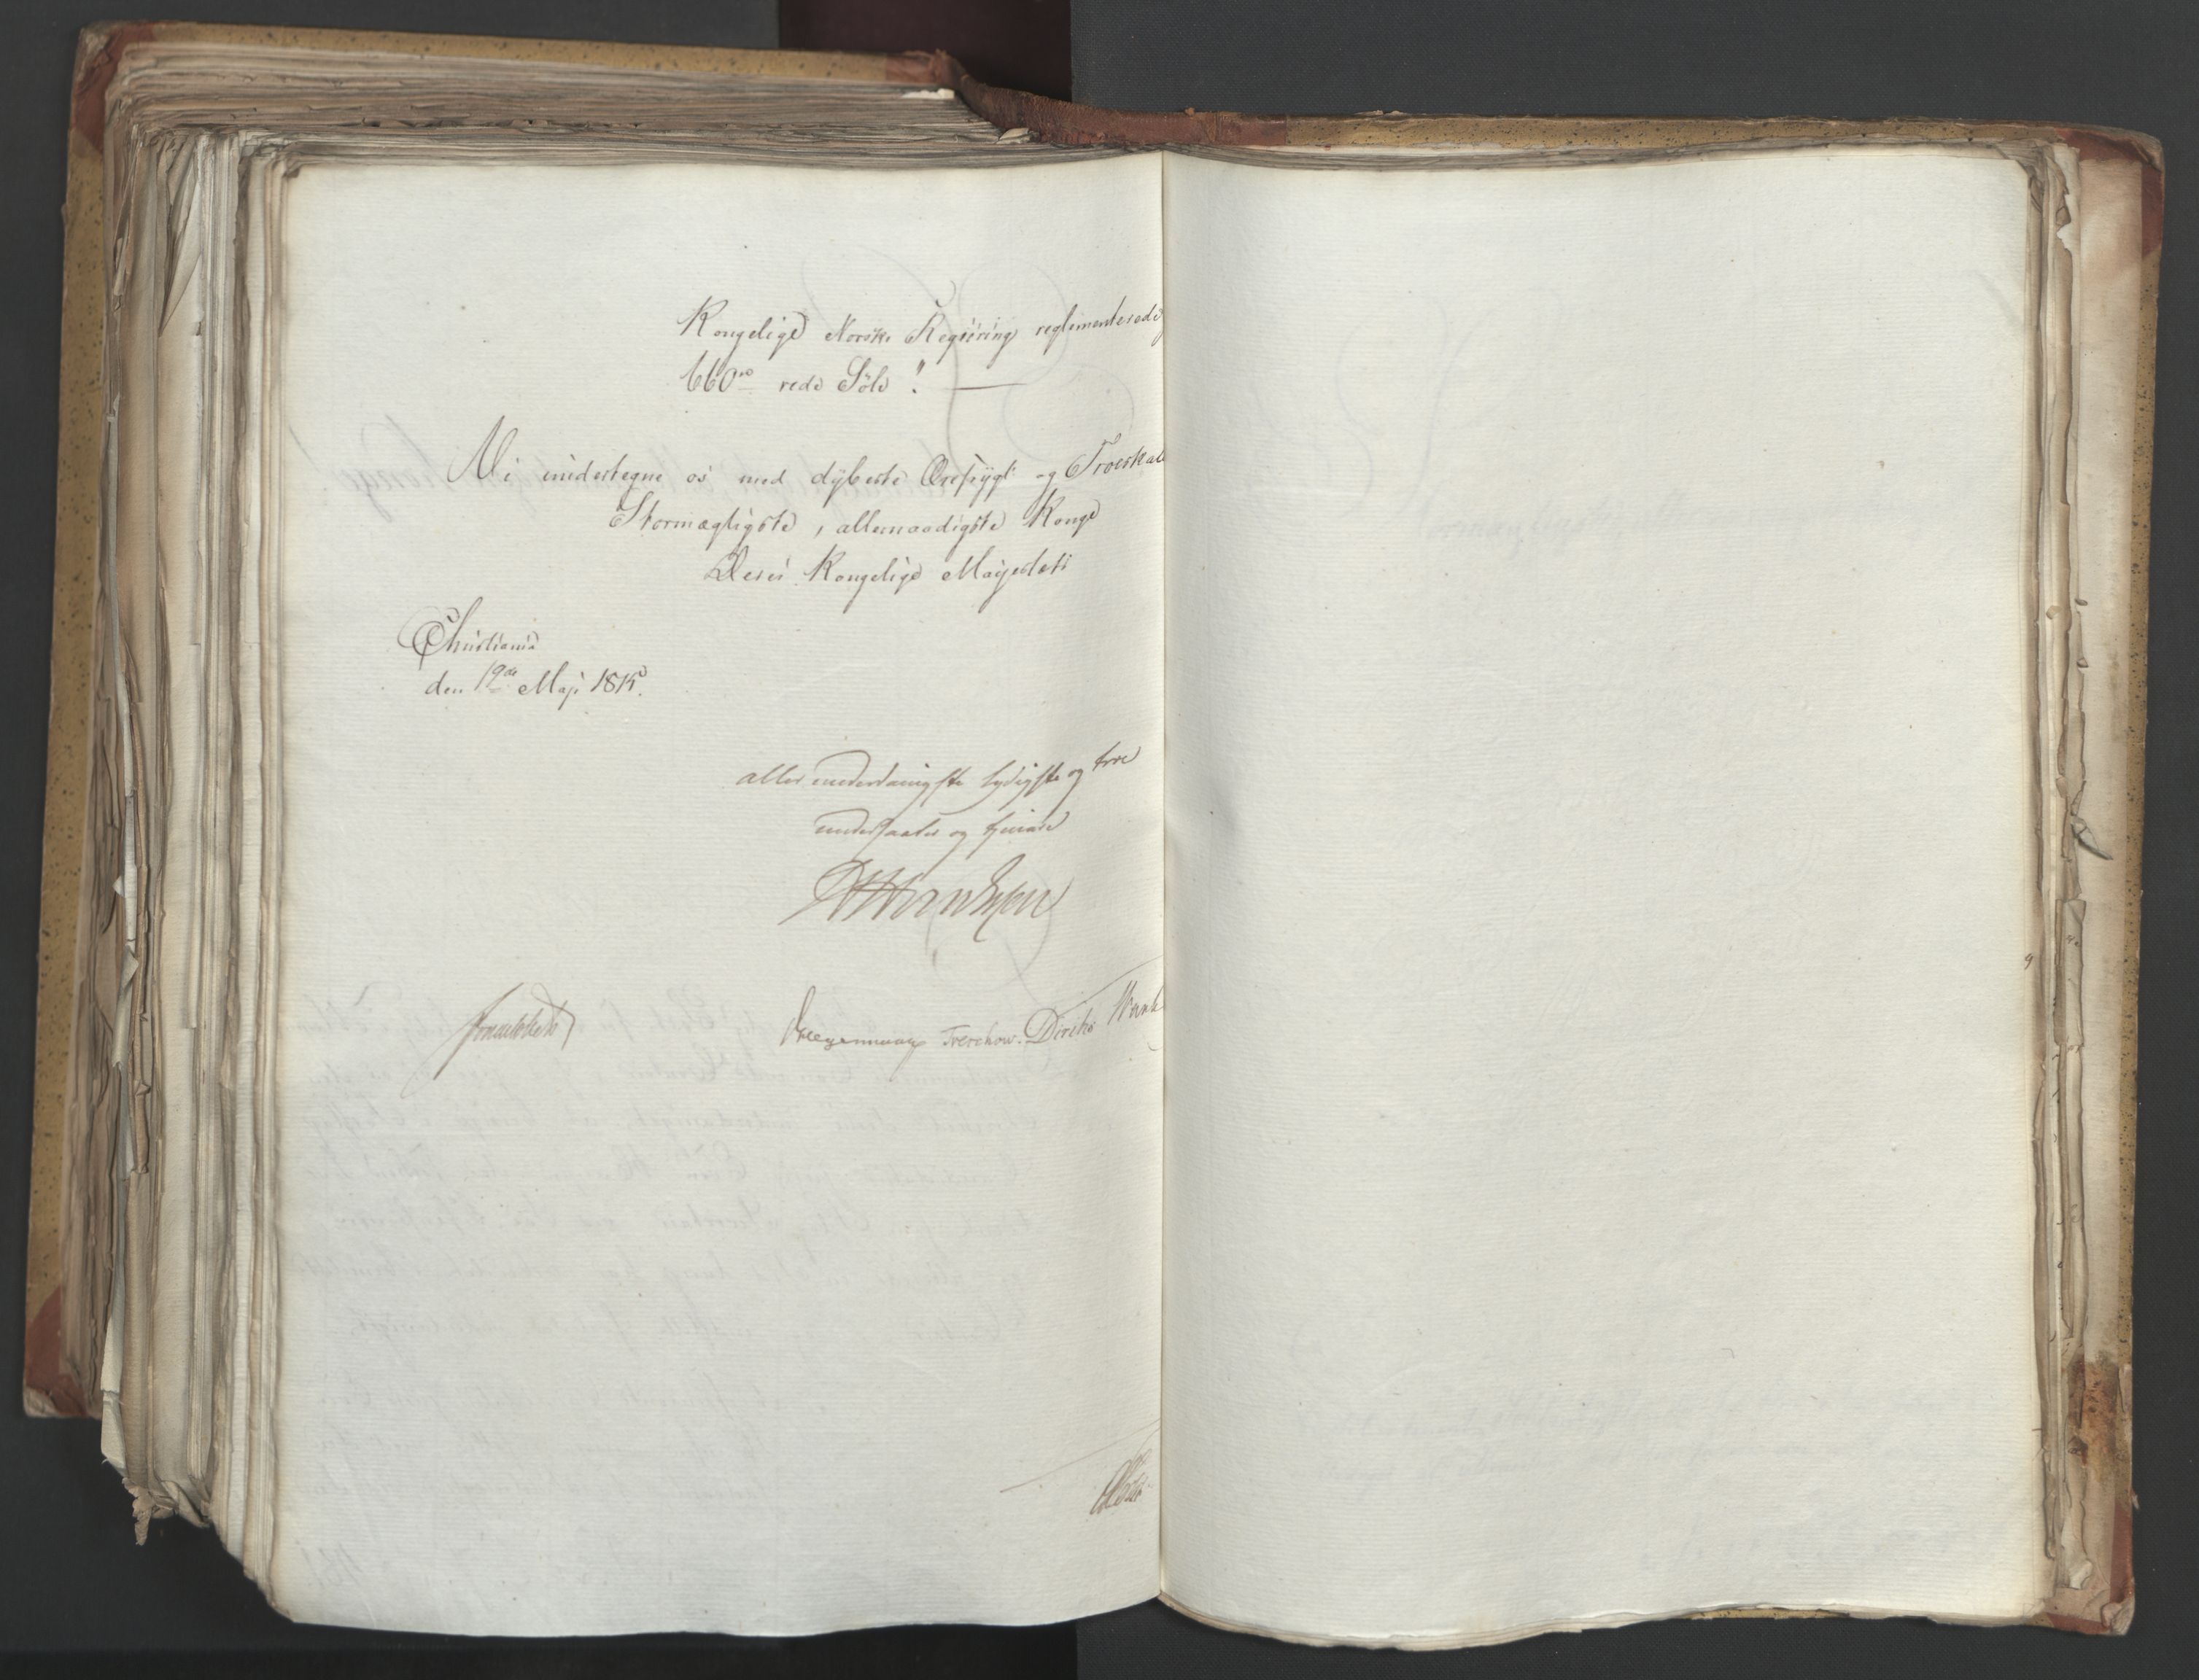 Kongelige Norske Regiering reglementerede
660 rede Sölv". —
Vi undertegne os med dybeste Ærefrygt og Troeskab
Stormægtigste, allernaadigste Konge
Deres Kongelige Majestæts
Christiania
den 19de Maji 1815.
allerunderdanigste lydigste og troe
undersaatter og tjenere
Treschow. Diriks